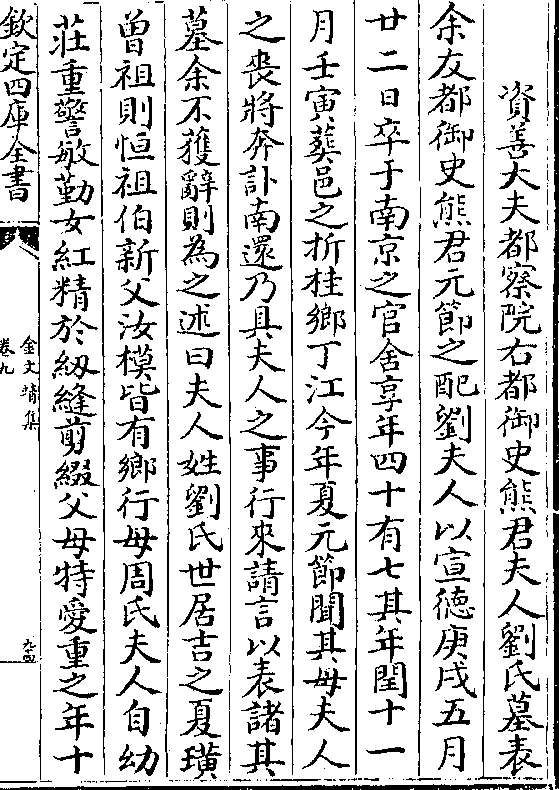 資善大夫都察院右都御史熊君夫人劉氏墓表
余友都御史熊君元節之配劉夫人以宣德庚戌五月
廿二日卒于南京之官舍享年四十有七其年閏十一
月壬寅葬邑之折桂鄉丁江今年夏元節聞其母夫人
之喪將奔訃南還乃具夫人之事行來請言以表諸其
墓余不獲辭則為之述曰夫人姓劉氏世居吉之夏璜
曾祖則恒祖伯新父汝模皆有鄉行母周氏夫人自幼
莊重警敏勤女紅精於紉縫剪綴父母特愛重之年十
欽定四庫全書
金文靖集
卷九
九四